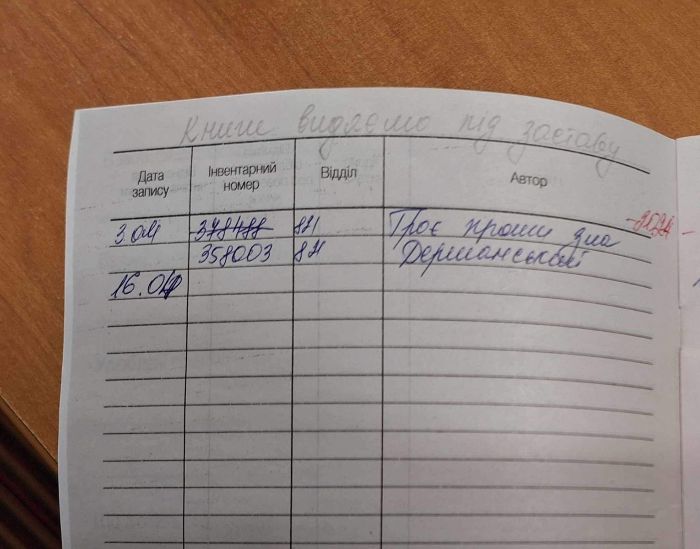 Книги видаємо під заставу
Дата запису Інвентарний номер Відділ Автор
3.04 378488 84 Троє проти зла -2024-
358003 84 Дерманський
16.04